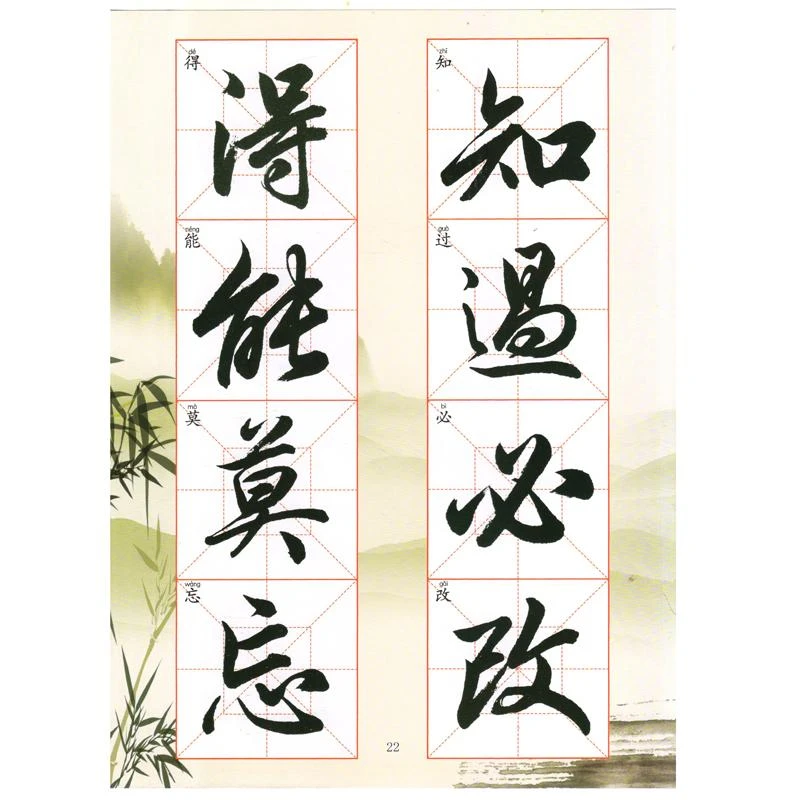 知過必改
得能莫忘
zhī 知
guò 过
bì 必
gǎi 改
dé 得
néng 能
mò 莫
wàng 忘
22